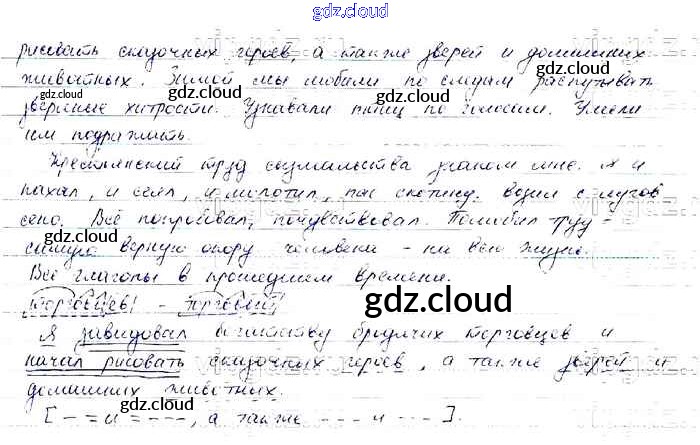 gdz.cloud
рисовать сказочных героев, а также зверей и домашних
животных. Зимой мы любили по следам распутывать
звериные хитрости. Узнавали птиц по голосам. Умели
им подражать.
Крестьянский труд сызмальства знаком мне. Я и
пахал, и сеял, и молотил, пас скотину, возил с лугов
сено. Всё попробовал, почувствовал. Полюбил труд –
самую верную опору человека – на всю жизнь.
Все глаголы в прошедшем времени.
торговцев –
Я завидовал богатству бродячих торговцев и
начал рисовать сказочных героев, а также зверей и
домашних животных.
[– = и = ---, а также --- и ---].
gdz.cloud
gdz.cloud
gdz.cloud
gdz.cloud
gdz.cloud
gdz.cloud
gdz.cloud
gdz.cloud
gdz.cloud
gdz.cloud